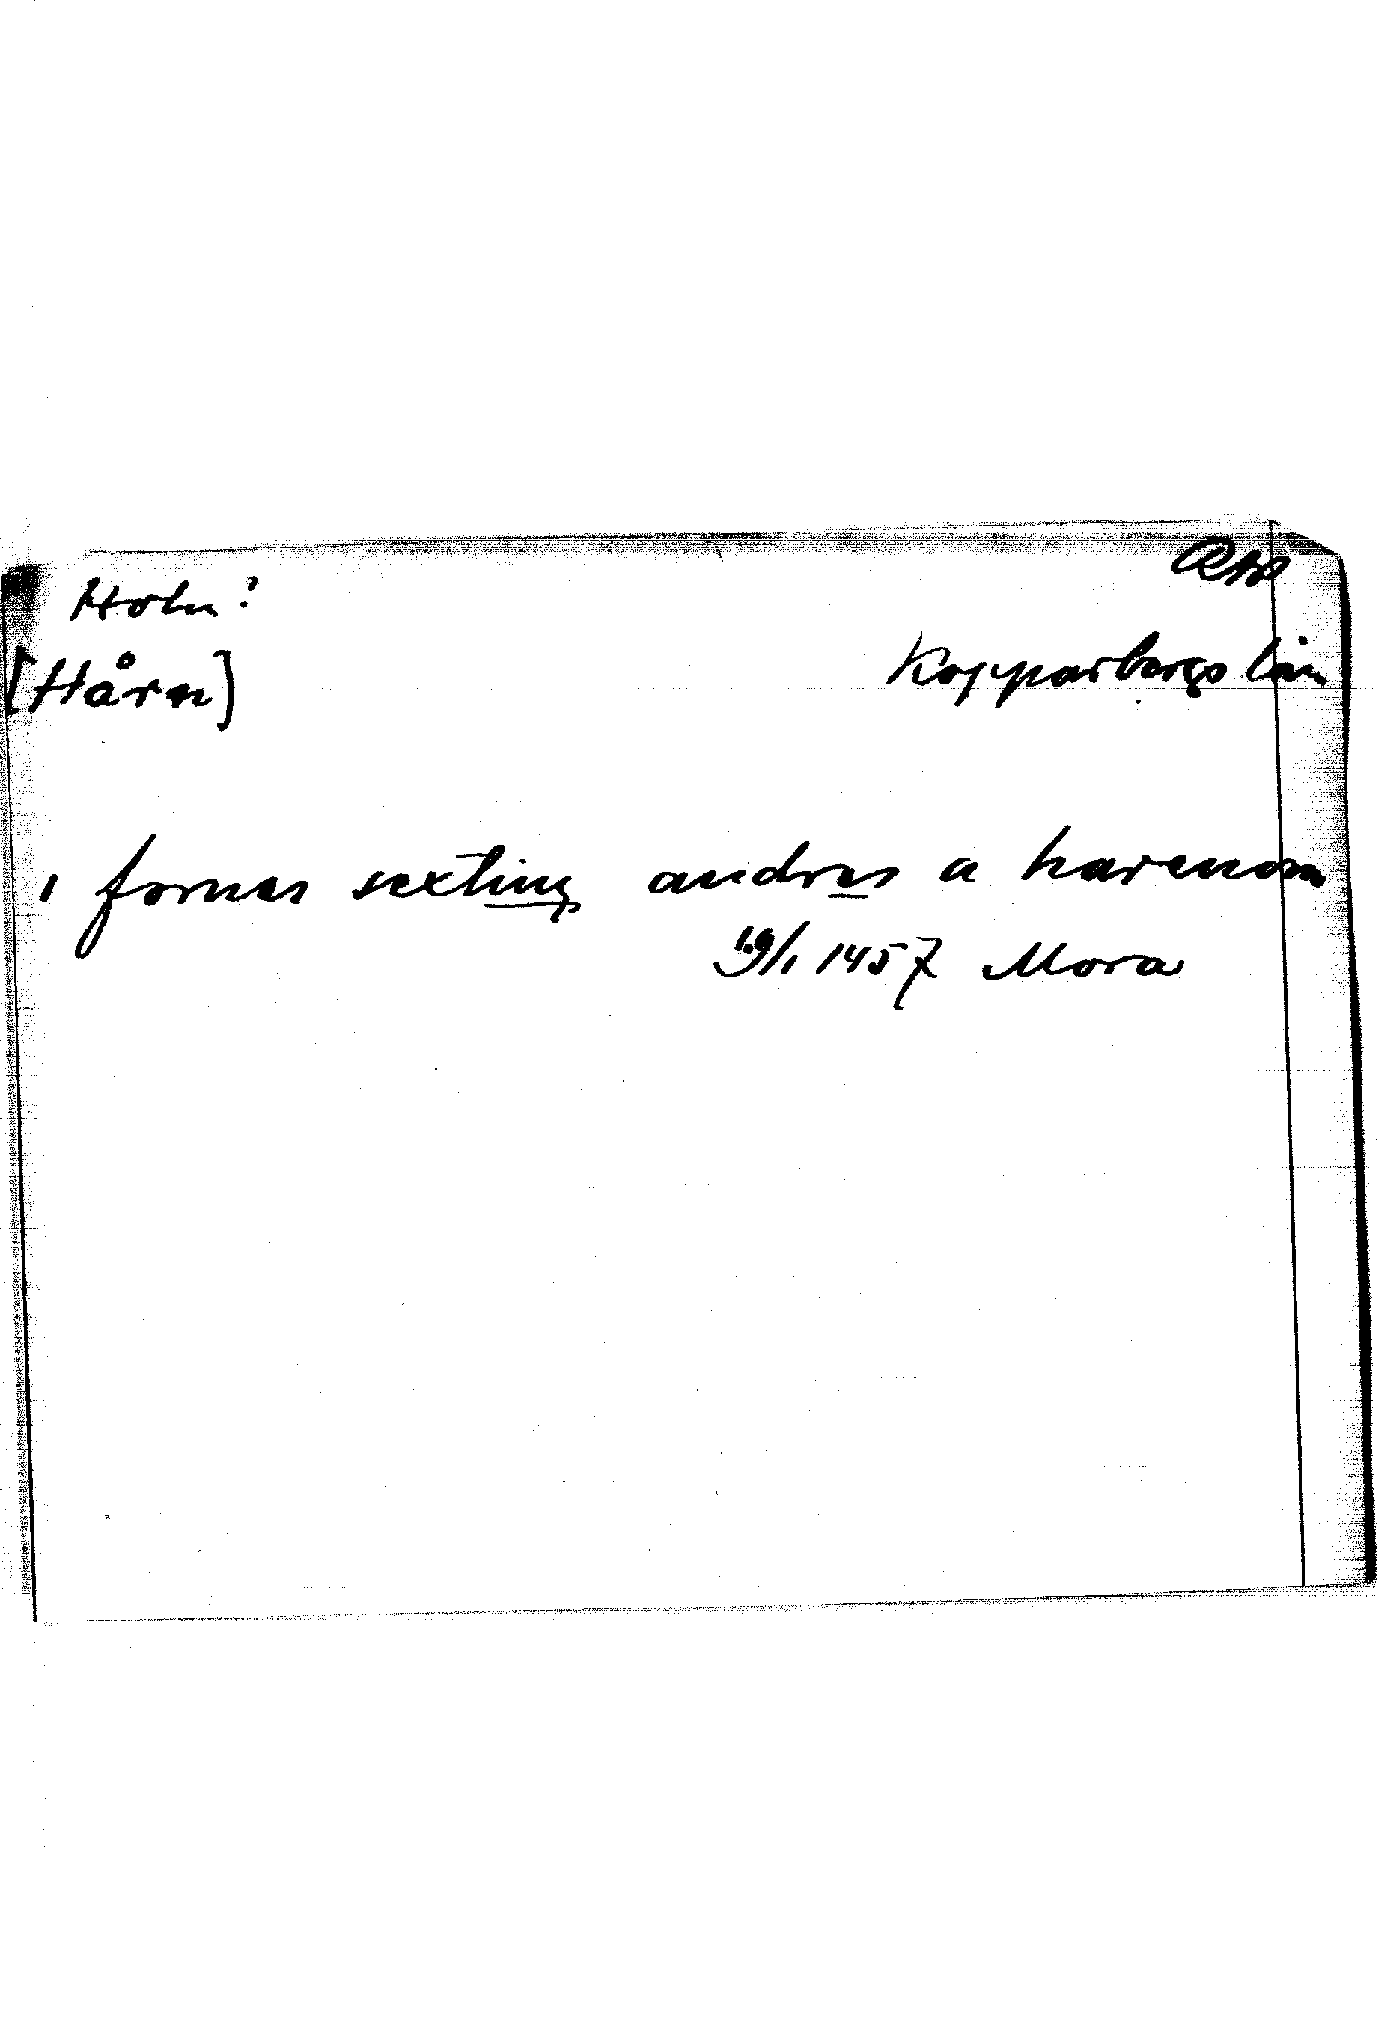 Holn?
[Hårn]
Kopparbergs län
i fornes sexting andres a harenom
19/1 1457 Mora